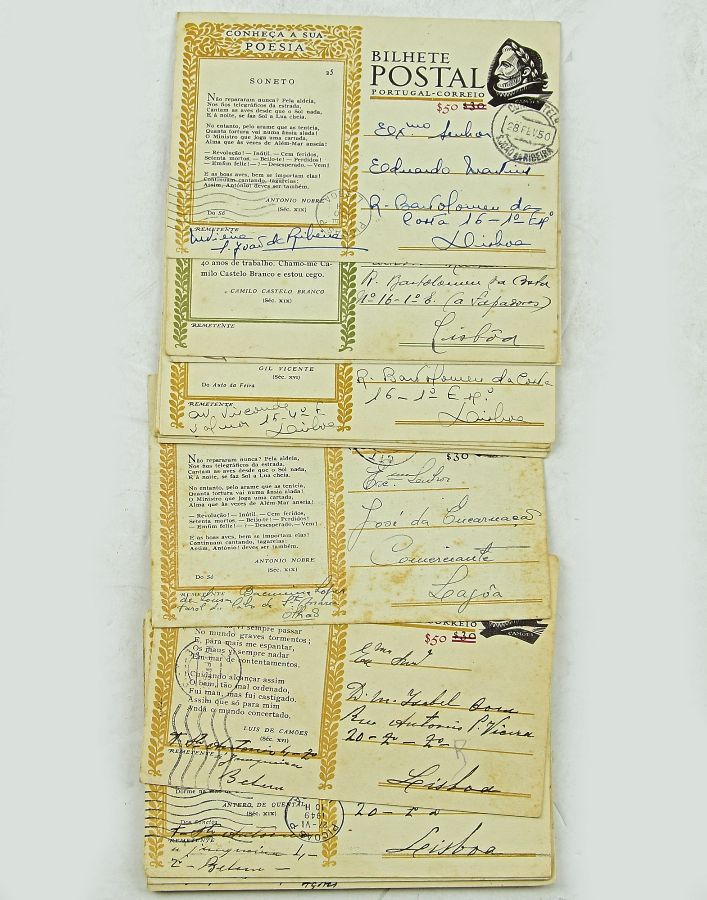 CONHEÇA A SUA
POESIA
25
SONETO
Não repararam nunca? Pela aldeia,
Nos fios telegráficos da estrada,
Cantam as aves desde que o Sol nada,
E à noite, se faz Sol a Lua cheia.
No entanto, pelo arame que as tenteia,
Quanta tortura vai numa ânsia alada!
O Ministro que joga uma cartada,
Alma que às vezes de Além-Mar anseia:
— Revolução! — Inútil. — Cem feridos,
Setenta mortos. — Beijo-te! — Perdidos!
— Enfim feliz! — ? — Desesperado. — Vem!
E as boas aves, bem se importam elas!
Continuam cantando, tagarelas:
Assim, António! deves ser também.
ANTONIO NOBRE
(Séc. XIX)
Do Só
REMETENTE
S. João da Ribeira
BILHETE
POSTAL
PORTUGAL-CORREIO
$50 $30
CAMÕES
28 FEV 50
Exmo Senhor
Eduardo Martins
R. Bartolomeu da
Costa 16-1º Eqº
Lisboa
40 anos de trabalho. Chamo-me Ca-
milo Castelo Branco e estou cego.
CAMILO CASTELO BRANCO
(Séc. XIX)
REMETENTE
R. Bartolomeu da Costa
Nº 16-1º E. (a Sapadores)
Lisbôa
GIL VICENTE
(Séc. XVI)
Do Auto da Feira
REMETENTE
Av. Visconde
Valmor 15-4º E
Lisboa
R. Bartolomeu da Costa
16-1º Eqº
Lisboa
Não repararam nunca? Pela aldeia,
Nos fios telegráficos da estrada,
Cantam as aves desde que o Sol nada,
E à noite, se faz Sol a Lua cheia.
No entanto, pelo arame que as tenteia,
Quanta tortura vai numa ânsia alada!
O Ministro que joga uma cartada,
Alma que às vezes de Além-Mar anseia:
— Revolução! — Inútil. — Cem feridos,
Setenta mortos. — Beijo-te! — Perdidos!
— Enfim feliz! — ? — Desesperado. — Vem!
E as boas aves, bem se importam elas!
Continuam cantando, tagarelas:
Assim, António! deves ser também.
ANTONIO NOBRE
(Séc. XIX)
Do Só
REMETENTE
Lopes
de Sousa
Farol do Cabo de Sta Maria
Olhão
$30
Exc. Senhor
José da Encarnação
Comerciante
Lagôa
vi sempre passar
No mundo graves tormentos;
E, para mais me espantar,
Os maus vi sempre nadar
Em mar de contentamentos.
Cuidando alcançar assim
O bem, tão mal ordenado,
Fui mau, mas fui castigado.
Assim que só para mim
Anda o mundo concertado.
LUIS DE CAMÕES
(Séc. XVI)
REMETENTE
T. Sto António 4-2º
à Junqueira
Belem
CORREIO
$50 $30
CAMÕES
D. M. Isabel
Rua Antonio P. Vieira
20-2º-2º
Lisboa
Dorme na mão
ANTERO DE QUENTAL
Dos Sonetos
REMETENTE
T. Sto António
à Junqueira 4-
2º-Belem
21-VI
1949
PICOAS
20-2º
Lisboa